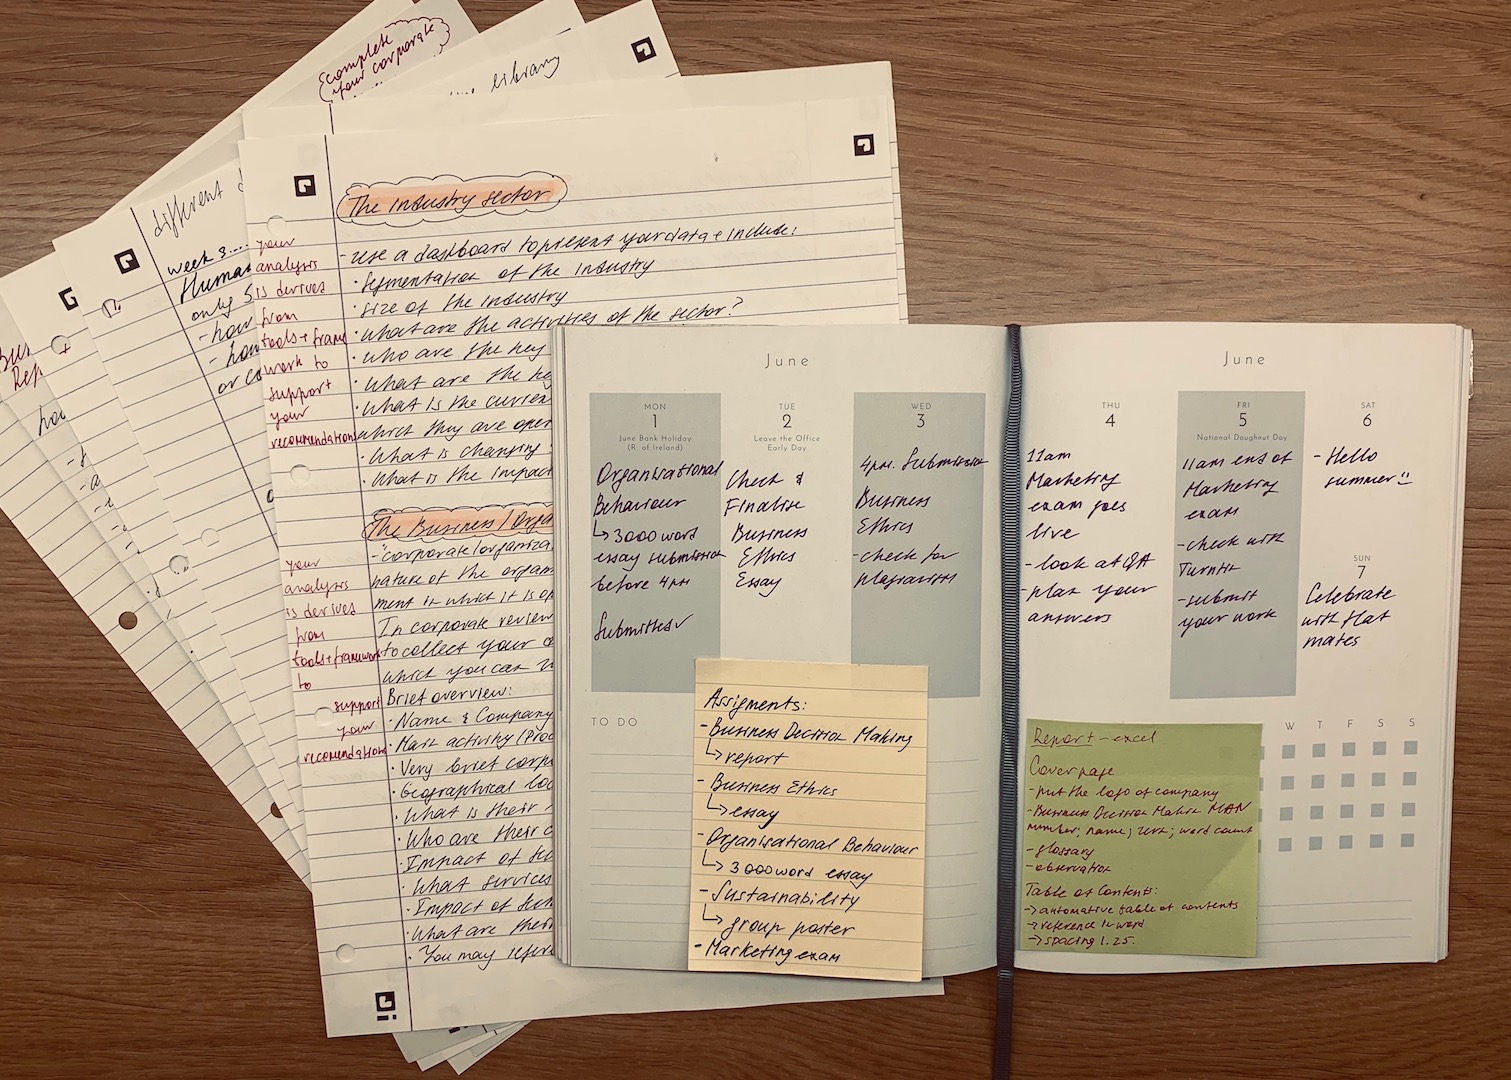 complete
your corporate
library
different
week 3....
Human
only 5
- how
- how
or co
Bus
Rep
how
The industry sector
- use a dashboard to present your data + include:
· Segmentation of the industry
· Size of the industry
· What are the activities of the sector?
· Who are the key
· What are the key
· What is the curren
which they are oper
· What is changing
· What is the impact
your
analysis
is derives
from
tools + frame
work to
support
your
recommendations
The Business / Orga
- "corporate/organiza
nature of the organ
ment in which it is op
In corporate review
to collect your
which you can
Brief overview:
· Name & Company
· Main activity / Proc
· Very brief corp
· Geographical loc
· What is their
· Who are their c
· Impact of
· What services
· Impact of
· What are their
· You may refere
your
analysis
is derives
from
tools + framework
to
support
your
recomendations
June
MON
1
June Bank Holiday
(R. of Ireland)
Organisational
Behaviour
↳ 3000 word
essay submission
before 4pm
Submitted ✓
TUE
2
Leave the Office
Early Day
Check &
Finalise
Business
Ethics
Essay
WED
3
4pm. Submission
Business
Ethics
- check for
plagiarism
TO DO
Assigments:
- Business Decision Making
↳ report
- Business Ethics
↳ essay
- Organisational Behaviour
↳ 3000 word essay
- Sustainability
↳ group poster
- Marketing exam
June
THU
4
11am
Marketing
exam goes
live
- look at Q&A
- plan your
answers
FRI
5
National Doughnut Day
11am end of
Marketing
exam
- check with
Turnitin
- submit
your work
SAT
6
- Hello
summer
SUN
7
Celebrate
with flat
mates
W T F S S
Report - excel
Cover page
- put the logo of company
- Business Decision Making MAN
number; name; word count
- glossary
- observation
Table of Contents:
→ automative table of contents
→ reference in word
→ spacing 1.25.